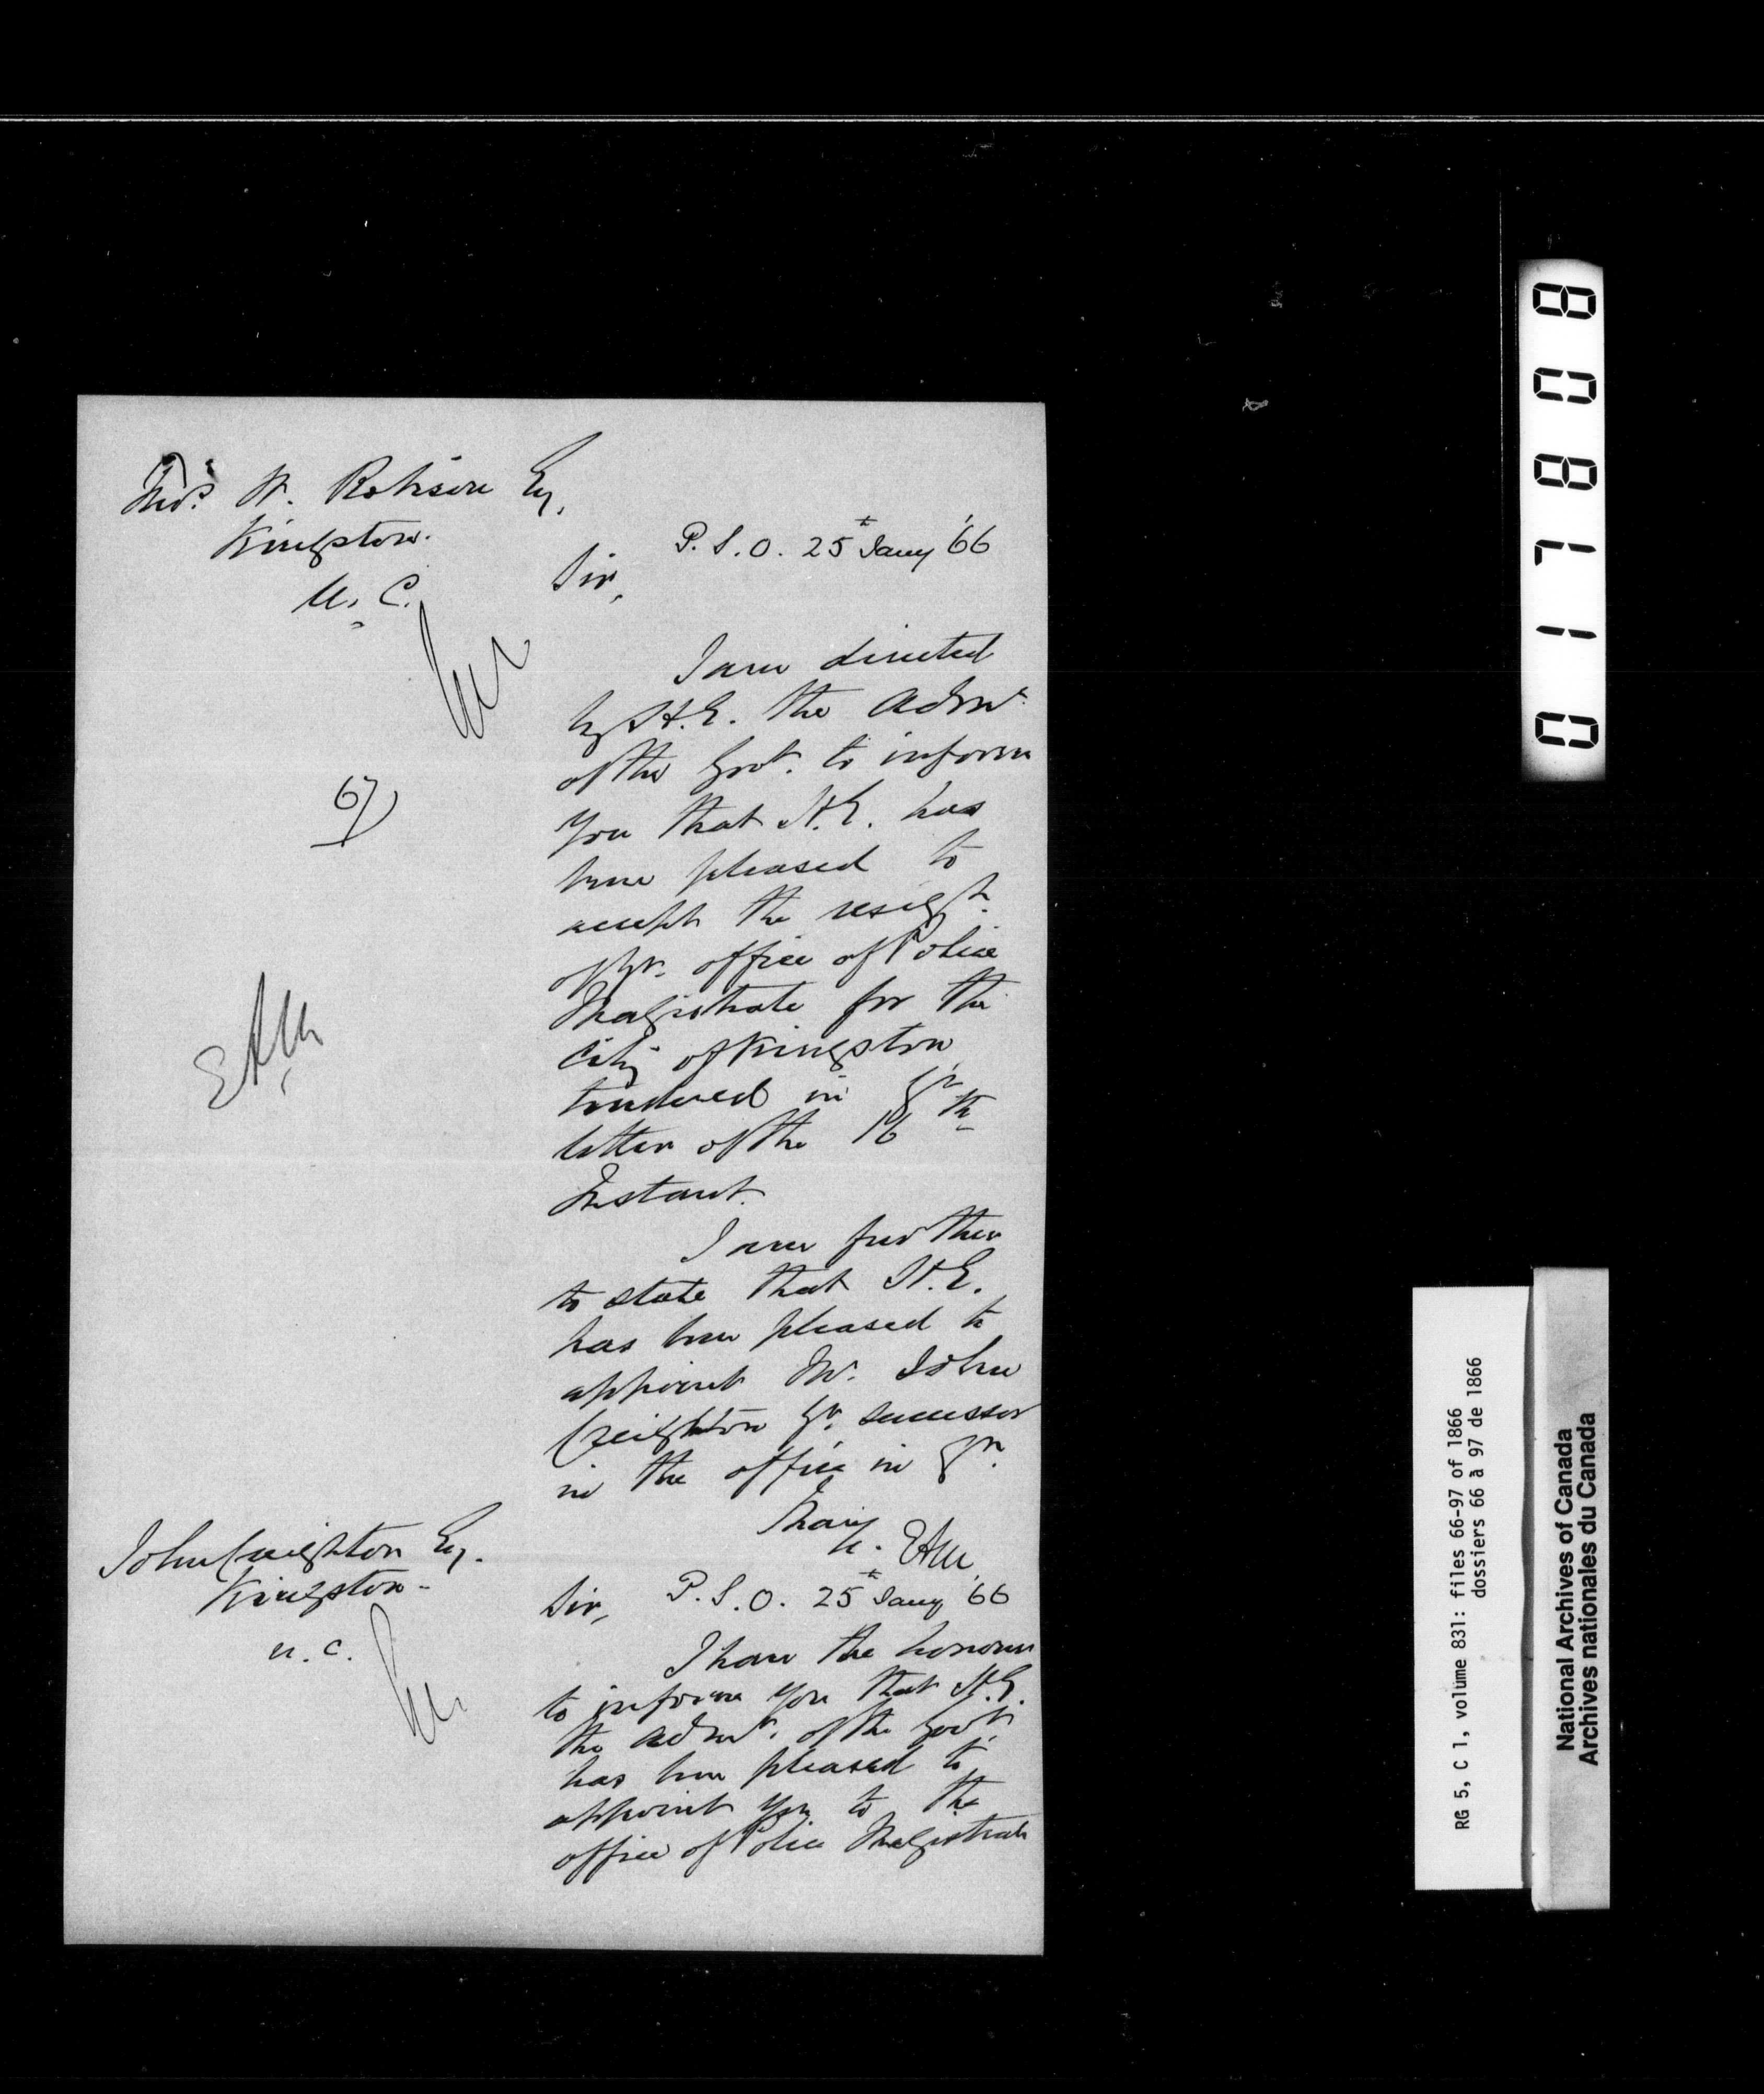 Thos. W. Robison Esq.
Kingston.
U. C.
P. S. O. 25th Jany '66
Sir,
I am directed
by H.E. the Admr.
of the Govt. to inform
you that H.E. has
been pleased to
accept the resigtn.
of yr. office of Police
Magistrate for the
City of Kingston
tendered in yr
letter of the 16th
Instant.
I am further
to state that H.E.
has been pleased to
appoint Mr. John
Creighton yr. successor
in the office in qn.
I have
&c. EAM.
67
EAM
John Creighton Esq.
Kingston-
U. C.
P. S. O. 25th Jany '66
Sir,
I have the honour
to inform you that H.E.
the Admr. of the Govt.
has been pleased to
appoint you to the
office of Police Magistrate
017808
RG 5, C 1, volume 831: files 66-97 of 1866
dossiers 66 à 97 de 1866
National Archives of Canada
Archives nationales du Canada